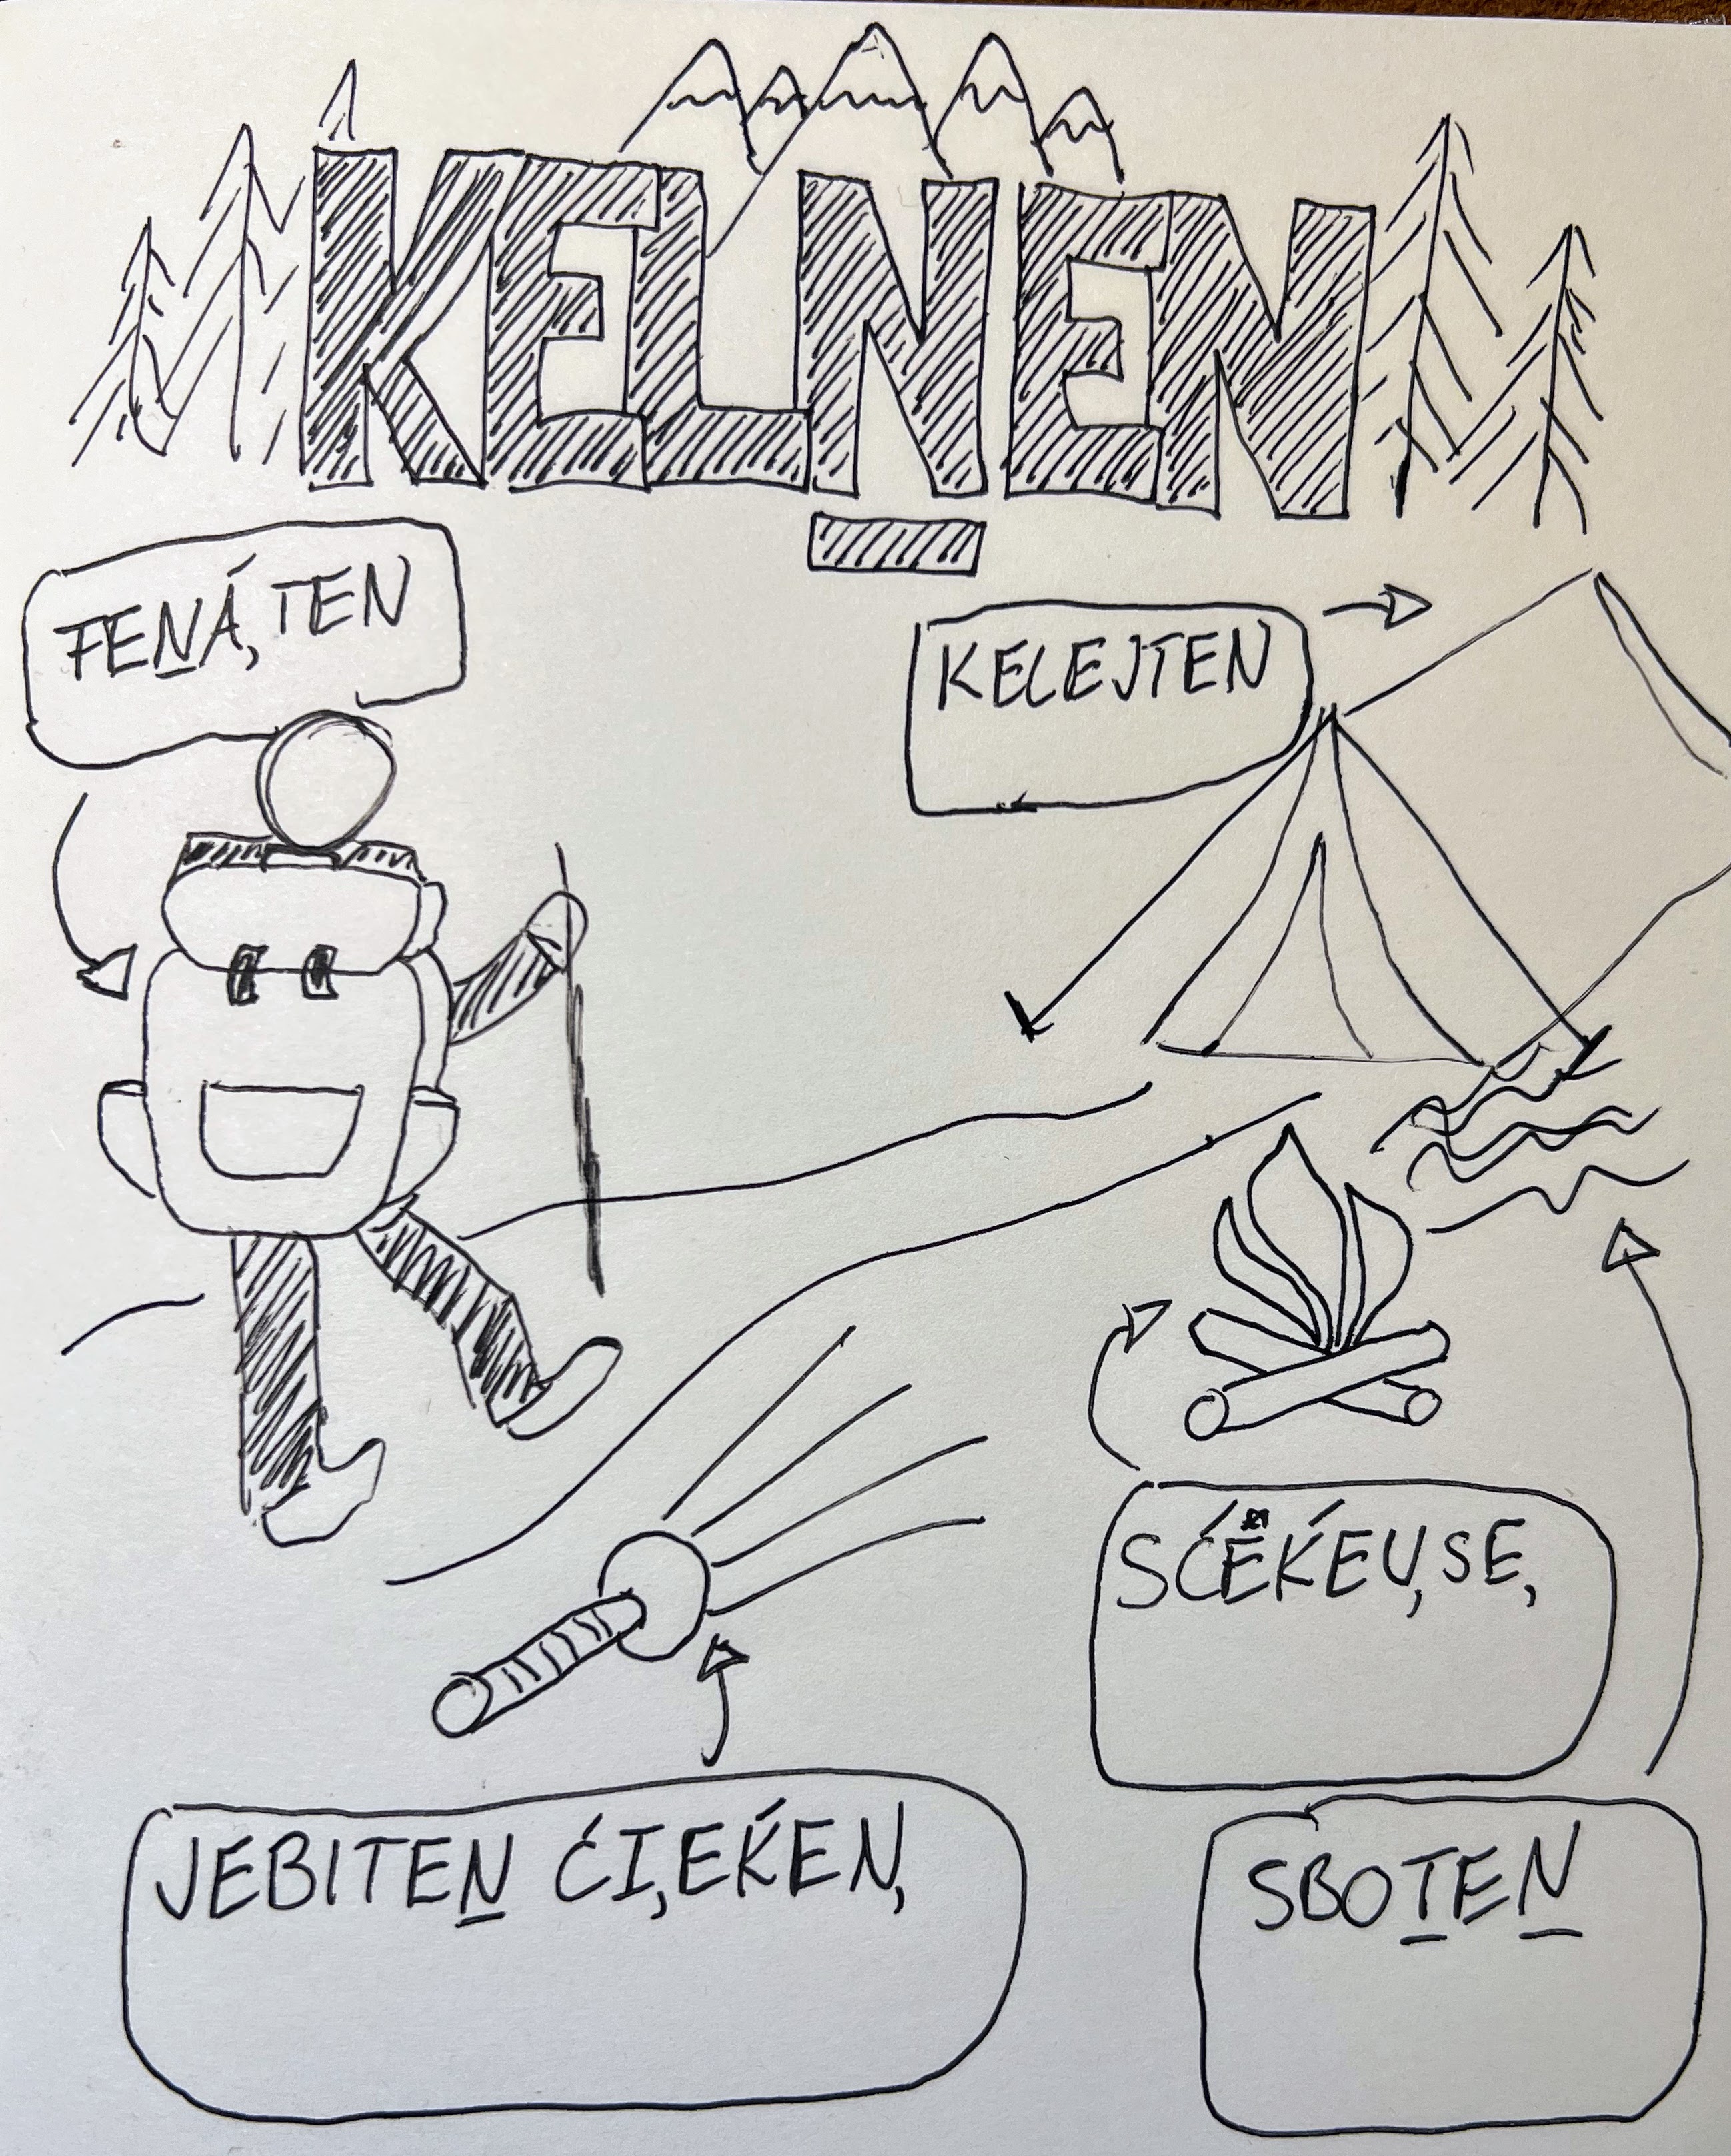 KELṈEN
ŦEṈÁ,TEN
KELEJTEN
SĆEḰEU,SE,
JEBITEṈ ĆI,EḰEN,
SBOṮEṈ